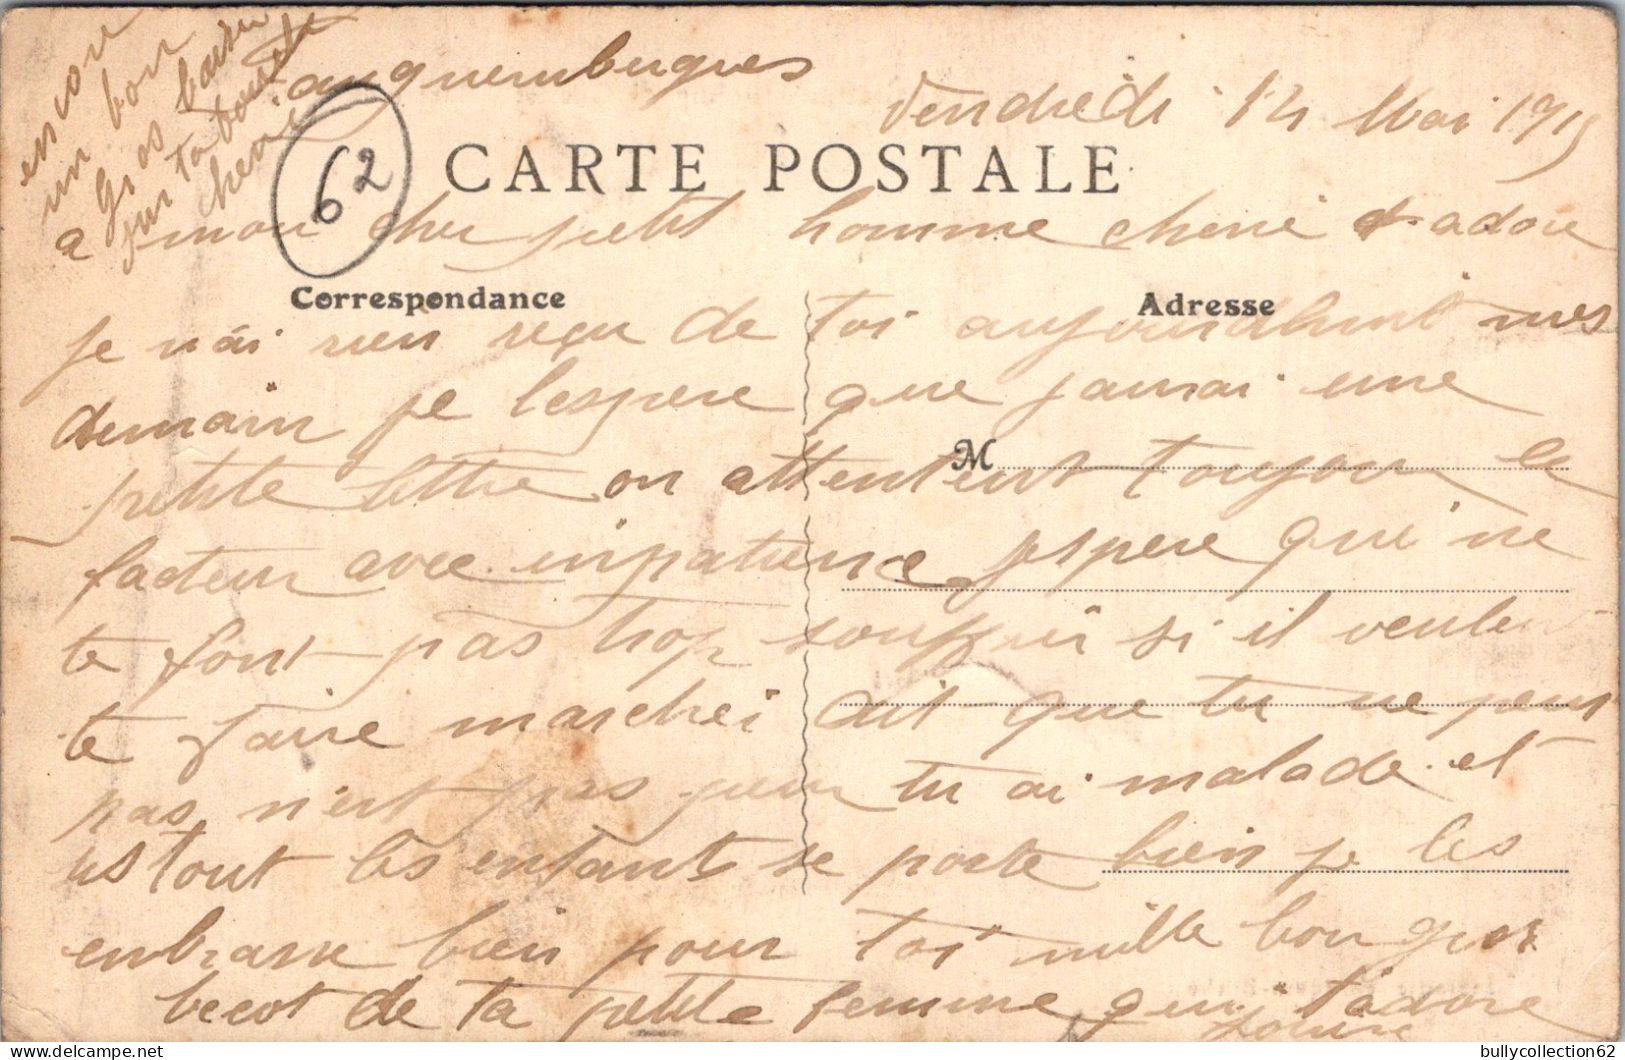 encore
un bon
gros baisé
sur ta bouche
cherie
Fauquembergues
Vendredi 14 Mai 1915
62
CARTE POSTALE
a mon cher petit homme cheri et adore
Correspondance
Adresse
je n'ai rien reçu de toi aujourdhuit mes
demain je l'espere que jaurai une
petite lettre on attentent toujour le
M
facteur avec inpatience jespere qui ne
te font pas trop souffrir si il veulent
te faire marcher dit que tu ne peus
pas n'est pas peur tu ai malade et
tout les enfant se porte bien je les
enbrasse bien pour toi mille bon gros
becot de ta petite femme qui t'adore
bullycollection62